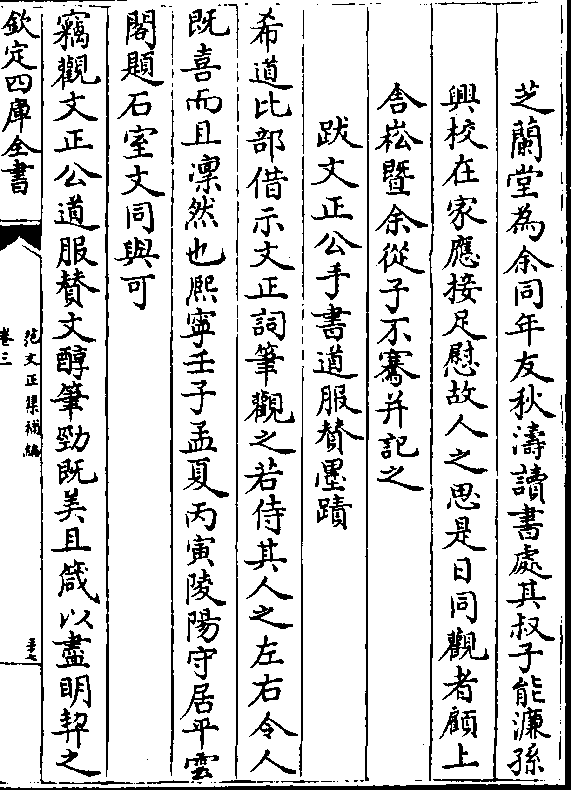 芝蘭堂為余同年友秋濤讀書處其叔子能濂孫
興校在家應接足慰故人之思是日同觀者顧上
舎崧暨余從子不騫并記之
跋文正公手書道服贊墨蹟
希道比部借示文正詞筆觀之若侍其人之左右令人
既喜而且凛然也熙寧壬子孟夏丙寅陵陽守居平雲
閣題石室文同與可
竊觀文正公道服贊文醇筆勁既美且箴以盡明契之
欽定四庫全書
范文正集補編
卷三